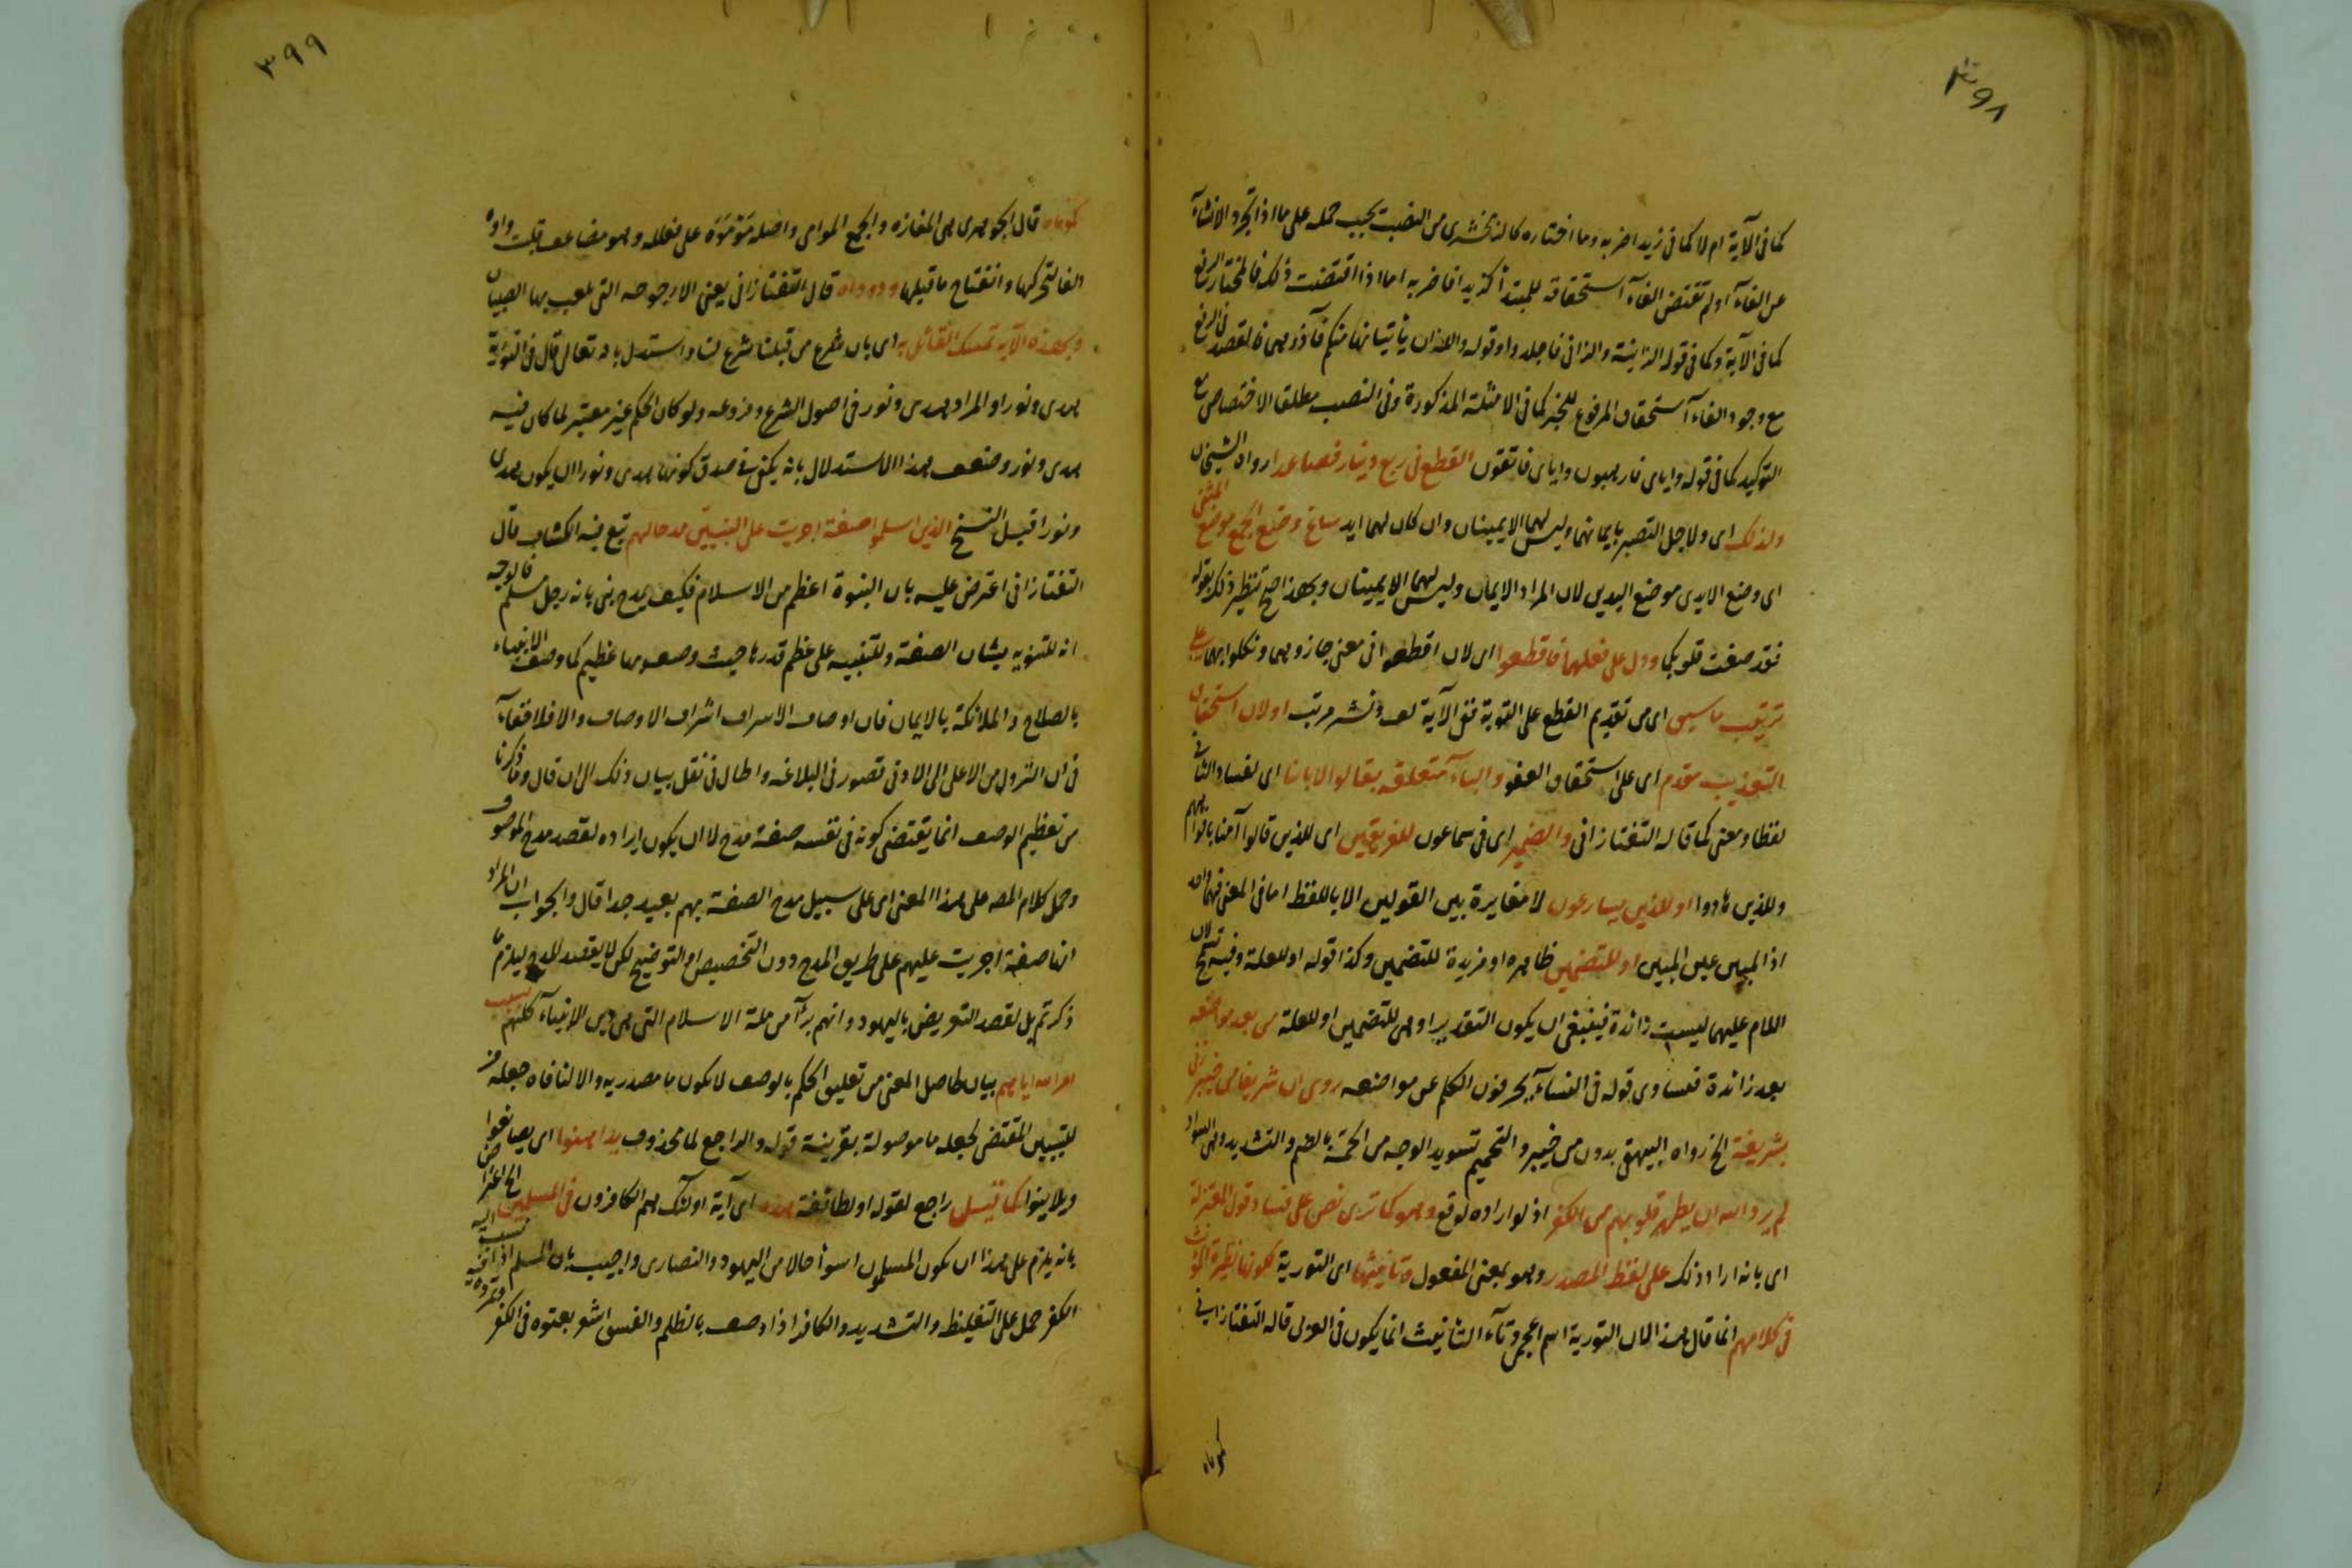 ٣٩٨
كما فى الآية ام لا كما فى زيد اضربه وما اختاره كالزمخشرى من النصب يجب حمله على ما اذا تجرد الانشاء
عن الفاء او لم تقتض الفاء استحقاقه للمبتدأ كزيدا فاضربه اما اذا اقتضت ذلك فالمختار الرفع
كما فى الآية وكما فى قوله الزانية والزانى فاجلدوا وقوله واللذان يأتيانها منكم فآذوهما فالقصد فى الرفع
مع وجود الفاء استحقاق المرفوع للخبر كما فى الامثلة المذكورة وفى النصب مطلق الاختصاص مع
التوكيد كما فى قوله واياى فارهبون واياى فاتقون القطع فى ربع دينار فصاعدا رواه الشيخان
ولذلك اى ولاجل التصبر بايمانهما وليس لهما الا يمينان وان كان لهما ايد ساغ وضع الجمع موضع المثنى
اى وضع الايدى موضع اليدين لان المراد الايمان وليس لهما الا يمينان وبهذا صح تنظير ذلك بقوله
فقد صغت قلوبكما ودل على فعلهما فاقطعوا اى لان اقطعوا فى معنى جازوهما ونكلوا بهما على
ترتيب ما سبق اى من تقديم القطع على التوبة ففى الآية لف ونشر مرتب اولان استحقاق
التعذيب مقدم اى على استحقاق العفو والباء متعلقة بقالوا لا بآمنا اى لفساد الثانى
لفظا ومعنى كما قاله التفتازانى والضمير اى فى سماعون للفريقين اى للذين قالوا آمنا بافواههم
وللذين هادوا او للذين يسارعون لا مغايرة بين القولين الا باللفظ اما فى المعنى فهما واحد
اذ المبين عين المبين او للتضمين ظاهره او مزيدة للتضمين وكذا قوله او للعلة وفيه تسمح لان
اللام عليهما ليست زائدة فينبغى ان يكون التقدير او هى للتضمين او للعلة من بعد مواضعه
بعد زائدة فساوى قوله فى النساء يحرفون الكلم عن مواضعه روى ان شريفا من خيبر زنى
بشريفة الخ رواه البيهقى بدون من خيبر والتحميم تسويد الوجه من الحمة بالضم والتشديد وهى السواد
لم يرد الله ان يطهر قلوبهم من الكفر اذ لو اراده لوقع وهو كما ترى نص على فساد قول المعتزلة
اى بانه اراد ذلك على لفظ المصدر وهو بمعنى المفعول وتانيثها اى التورية لكونها نظيرة المؤنث
فى كلامهم انما قال هذا لان التورية اسم اعجمى وتاء التأنيث انما يكون فى العربى قاله التفتازانى
كموماه
٣٩٩
كموماه قال الجوهرى هى المفازه والجمع الموامى واصله مَوْمَوَة على فعلله وهو مضاعف قلبت واوه
الفا لتحركها وانفتاح ما قبلها ودوداه قال التفتازانى يعنى الارجوحه التى يلعب بها الصبيان
وبهذه الآية تمسك القائل به اى بان شرع من قبلنا شرع لنا واستدل بانه تعالى قال فى التورية
هدى ونور والمراد هدى ونور فى اصول الشرع وفروعه ولو كان الحكم غير معتبر لما كان فيه
هدى ونور وضعف هذا الاستدلال بانه يكفى فى صدق كونها هدى ونورا ان يكون هدى
ونورا قبل النسخ الذين اسلموا صفة اجريت على النبيين مدحا لهم تبع فيه الكشاف قال
التفتازانى اعترض عليه بان النبوة اعظم من الاسلام فكيف يمدح نبى بانه رجل مسلم فالوجه
انه للتنويه بشان الصفة وللتنبيه على عظم قدرها حيث وصف بها عظيم كما وصف الانبياء
بالصلاح والملائكة بالايمان فان اوصاف الاشراف اشراف الاوصاف والا فلا خفاء
فى ان النزول من الاعلى الى الادنى قصور فى البلاغة واطال فى نقل بيان ذلك الى ان قال وما ذكرنا
من تعظيم الوصف انما يقتضى كونه فى نفسه صفة مدح لا ان يكون ايراده لقصد مدح الموصوف
وحمل كلام المص على هذا المعنى اى على سبيل مدح الصفة بهم بعيد جدا قال والجواب ان المراد
انها صفة اجريت عليهم على طريق المدح دون التخصيص او التوضيح لكن لا يقصد المدح ليلزم ما
ذكرتم بل لقصد التعريض باليهود وانهم برآء من ملة الاسلام التى هى دين الانبياء كلهم بسبب
امر الله اياهم بيان لحاصل المعنى من تعليق الحكم بالوصف لا لكون ما مصدريه والا لنافاه جعله من
للتبيين المقتضى لجعله ما موصولة بقرينة قوله والراجع لما محذوف يداهنوا اى يصانعوا
ويلاينوا كما قيل راجع لقوله او لطائفة هذه اى آية اولئك هم الكافرون فى المسلمين الخ اعترض
بانه يلزم على هذا ان يكون المسلمون اسوأ حالا من اليهود والنصارى واجيب بان المسلم اذا نسب اليه
الكفر حمل على التغليظ والتشديد والكافر اذا وصف بالظلم والفسق اشعر بعتوه فى الكفر